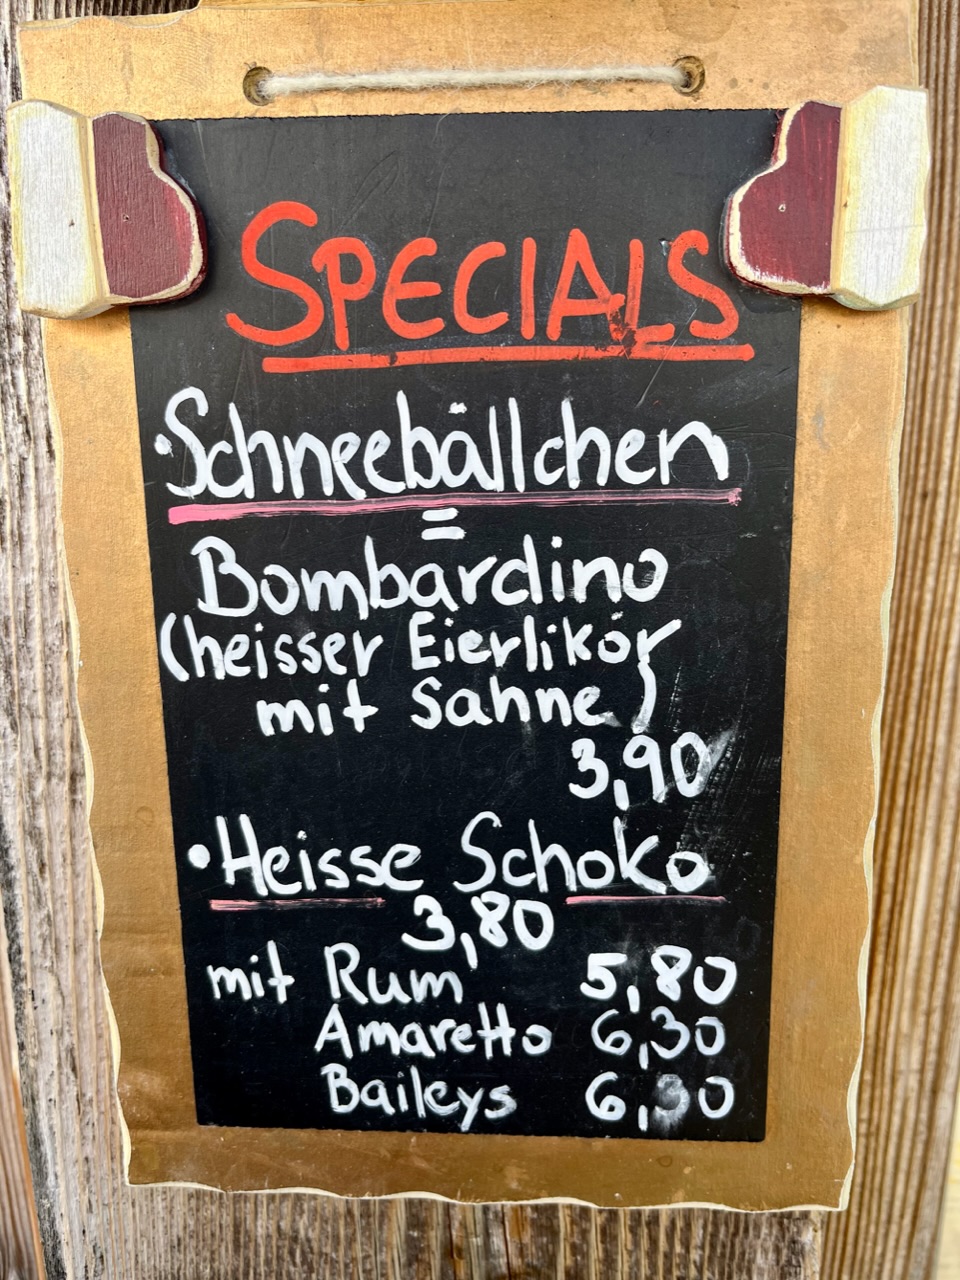 SPECIALS
·Schneebällchen
=
Bombardino
(heisser Eierlikör
mit Sahne)
3,90
·Heisse Schoko
3,80
mit Rum 5,80
Amaretto 6,30
Baileys 6,30